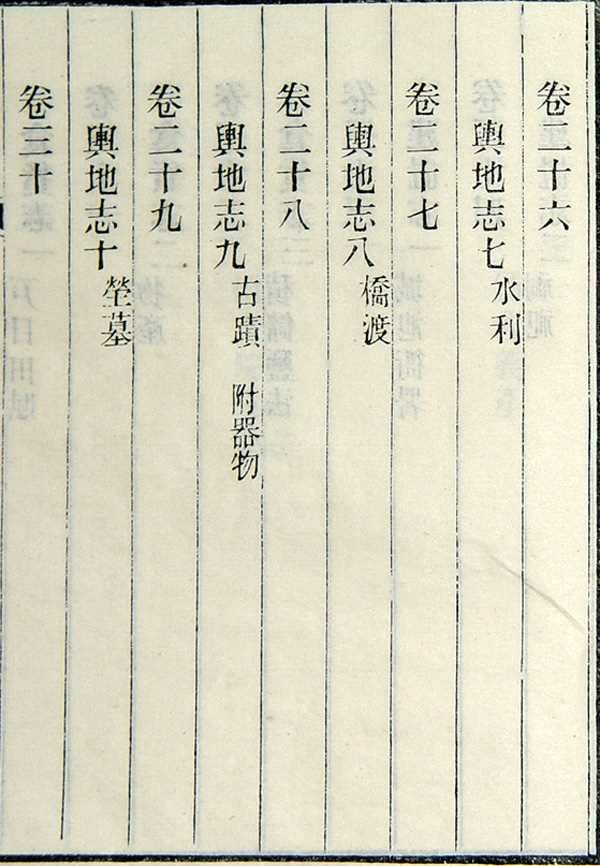 卷二十六
輿地志七 水利
卷二十七
輿地志八 橋渡
卷二十八
輿地志九 古蹟 附器物
卷二十九
輿地志十 塋墓
卷三十